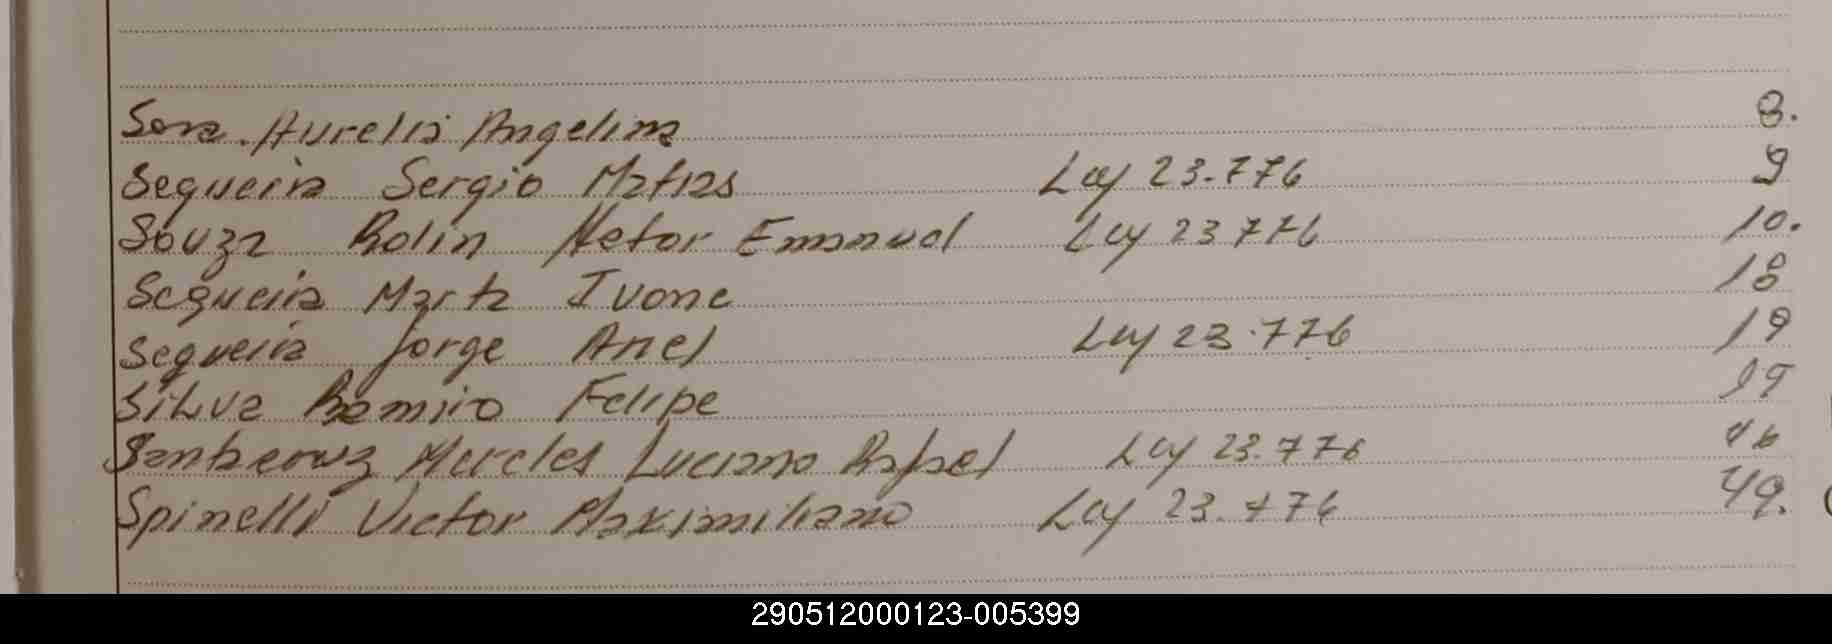 Sosa. Aurelia Angelina 8.
Sequeira Sergio Matias Ley 23.776 9
Souza Rolin Hetor Emanuel Ley 23776 10.
Sequeira Marta Ivone 18
Sequeira Jorge Ariel Ley 23.776 19
Silva Ramiro Felipe
Luciano Rafael Ley 23.776 46
Spinelli Victor Maximiliano Ley 23.776 49.
290512000123-005399